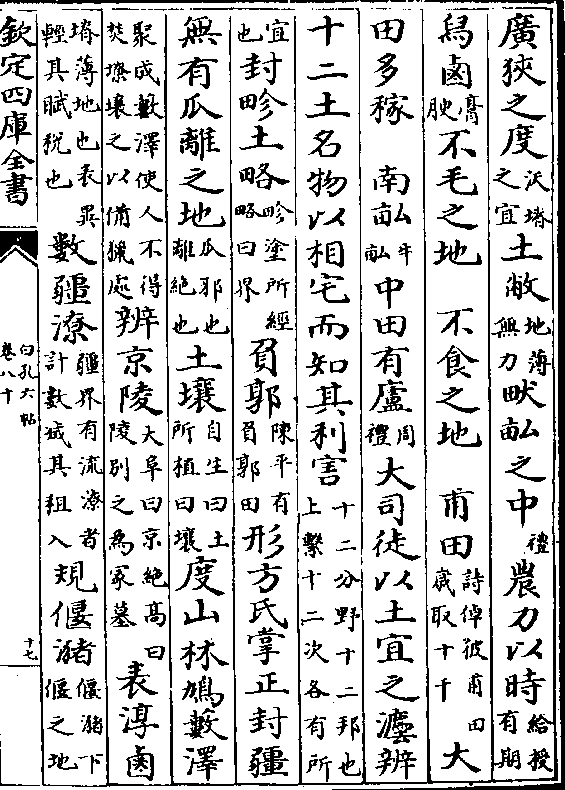 廣狹之度沃塉之宜土敝地薄無力畎畝之中禮農力以時給授有期
舄鹵膏腴不毛之地　不食之地　甫田詩倬彼甫田歲取十千大
田多稼　南畝牛畝中田有廬周禮大司徒以土宜之灋辨
十二土名物以相宅而知其利害十二分野十二邦也上繫十二次各有所
宜也封畛土略畛塗所經略曰界負郭陳平有負郭田形方氏掌正封疆
無有瓜離之地瓜邪也離絶也土壤自生曰土所植曰壤度山林鳩藪澤
聚成藪澤使人不得焚燎壞之以備獵處辨京陵大阜曰京絶高曰陵別之為冢墓　表淳鹵
塉薄地也表異輕其賦稅也數疆潦疆界有流潦者計數減其租入規偃豬偃豬下偃之地
欽定四庫全書
白孔六帖
卷八十
十七